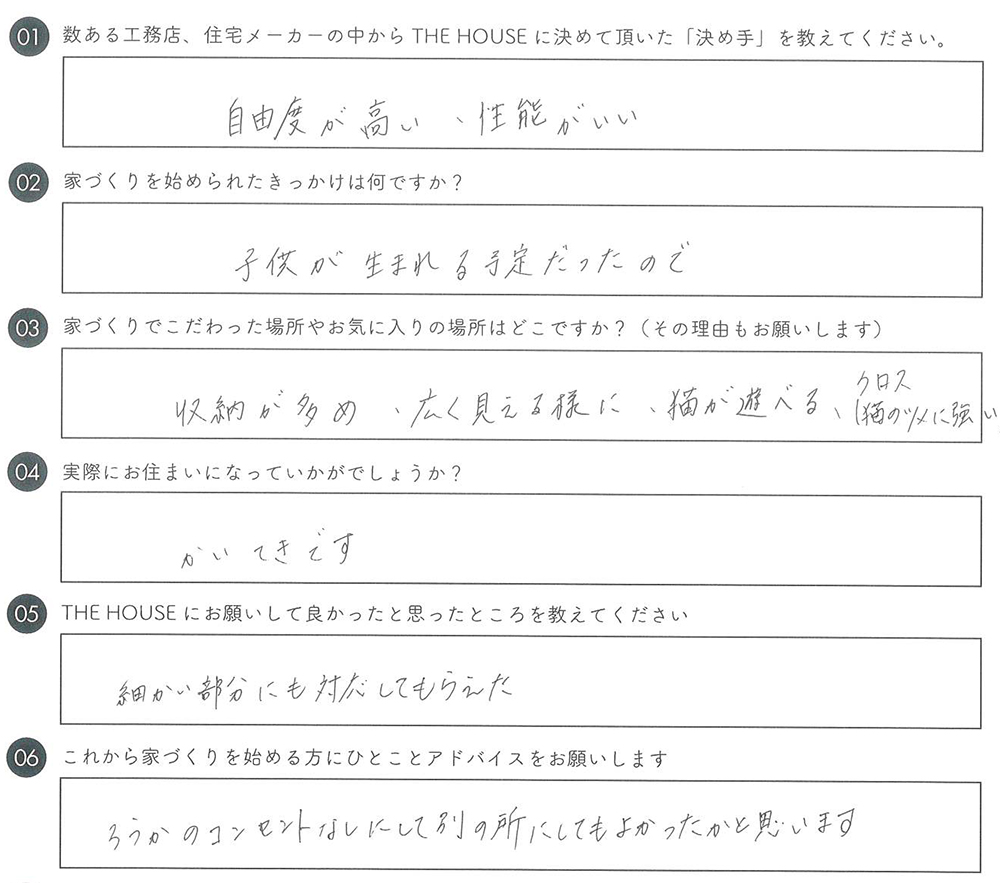 01 数ある工務店、住宅メーカーの中から THE HOUSE に決めて頂いた「決め手」を教えてください。
自由度が高い、性能がいい
02 家づくりを始められたきっかけは何ですか？
子供が生まれる予定だったので
03 家づくりでこだわった場所やお気に入りの場所はどこですか？（その理由もお願いします）
収納が多め、広く見える様に、猫が遊べる、クロス
(猫のツメに強い
04 実際にお住まいになっていかがでしょうか？
かいてきです
05 THE HOUSE にお願いして良かったと思ったところを教えてください
細かい部分にも対応してもらえた
06 これから家づくりを始める方にひとことアドバイスをお願いします
ろうかのコンセントなしにして別の所にしてもよかったかと思います